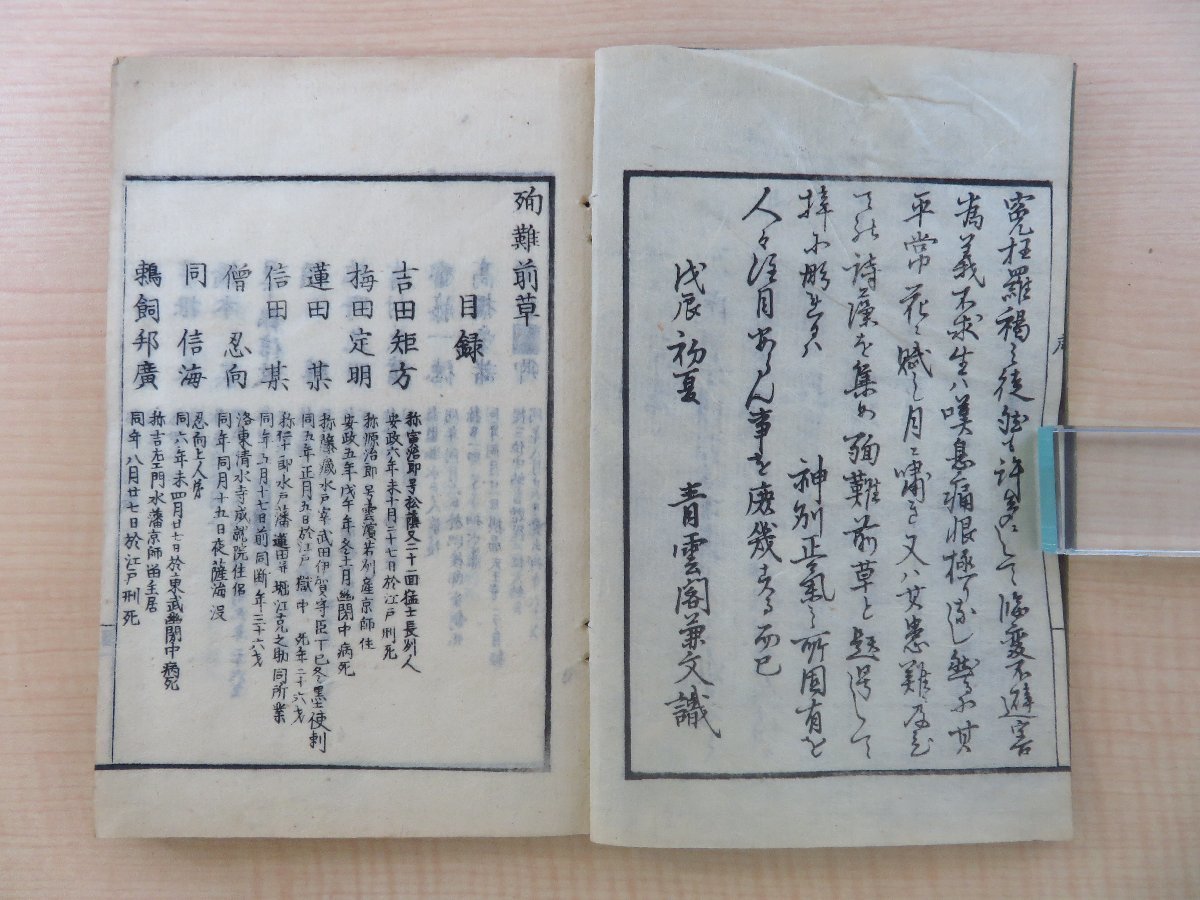 冤枉羅織之徒
為義不求生ハ嘆息痛恨極
平常花ニ賦し月ニ嘯き又ハ其患難
詩藻を集め殉難前草と題
神州正氣之所固有を
人々注目あらん事を庶幾する而已
戊辰初夏 青雲閣兼文識
殉難前草
目録
吉田矩方 称寅治郎号松蔭又二十一回猛士長州人
安政六年未十月二十七日於江戸刑死
梅田定明 称源治郎号雲濱若州産京師住
安政五年戊午年冬十二月幽閉中病死
蓮田某 称藤蔵水戸宰武田伊賀守臣丁巳冬墨使刺
同五年正月五日於江戸獄中死年二十六才
信田某 称仁十郎水戸藩蓮田并堀江克之助同所業
同年五月十七日前同断年三十六才
僧忍向 洛東清水寺成就院住侶
同年同月十五日夜薩海没
同信海 忍向上人弟
同六年未四月廿七日於東武幽閉中病死
鵜飼邦廣 称吉左エ門水藩京師留主居
同年八月廿七日於江戸刑死